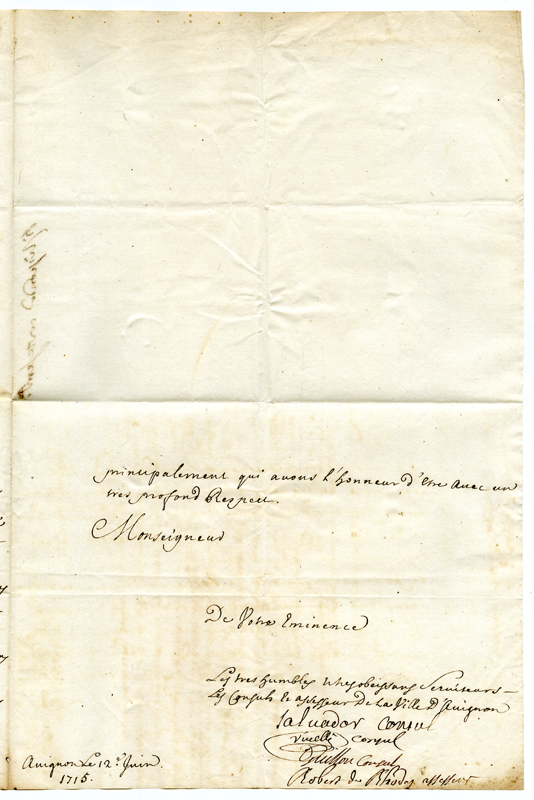 principalement qui avons l'honneur d'etre avec un
tres profond Respect.
Monseigneur
De Votre Eminence
Les tres humbles et tres obeissans Serviteurs
Les Consuls et assesseur De La Ville D'Avignon
Salvador Consul
Consul
Consul
Robert de Rhodes assesseur
Avignon Le 12e Juin
1715.